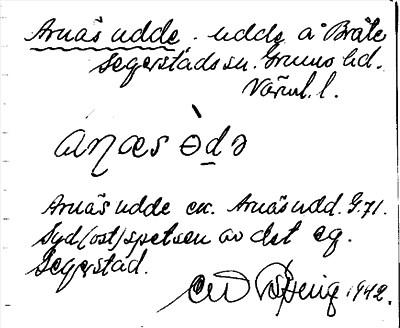 Arnäs udde. udde å Bråte
Segerstads sn. Grums hd.
Värml. l.
Arnäs udde ek. Arnäsudd. G.71.
Syd(ost)spetsen av det eg.
Segerstad.
1942.